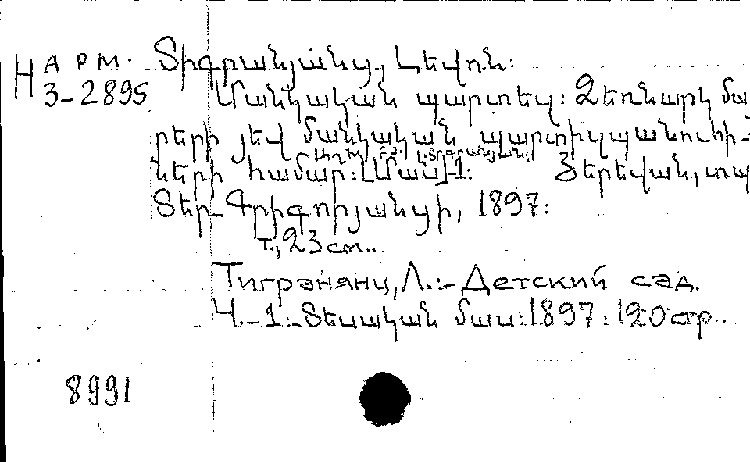 Н АРМ. Տիգրանյանց, Լեվոն:
3-2895 Մանկական պարտեզ: Ձեռնարկ մա
րերի յեվ մանկական պարտիզպանուհի-
ների համար: [Մաս] 1: Յերեվան, տպ
Տեր-Գրիգորյանցի, 1897:
т., 23 см..
Тигранянц, Л.:- Детский сад.
Ч.-1.-Տեսական մաս: 1897: 120 стр..
8991